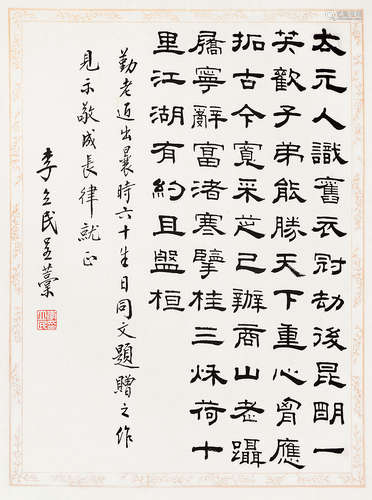 太元人識舊衣冠劫後昆眀一
笑歡子弟能勝天下重心胷應
拓古今寬采芝已辦商山老躡
屩寧辭富渚寒擘桂三秌荷十
里江湖有約且盤桓
勤老近出曩時六十生日同文題贈之作
見示敬成長律就正
李立民呈藁